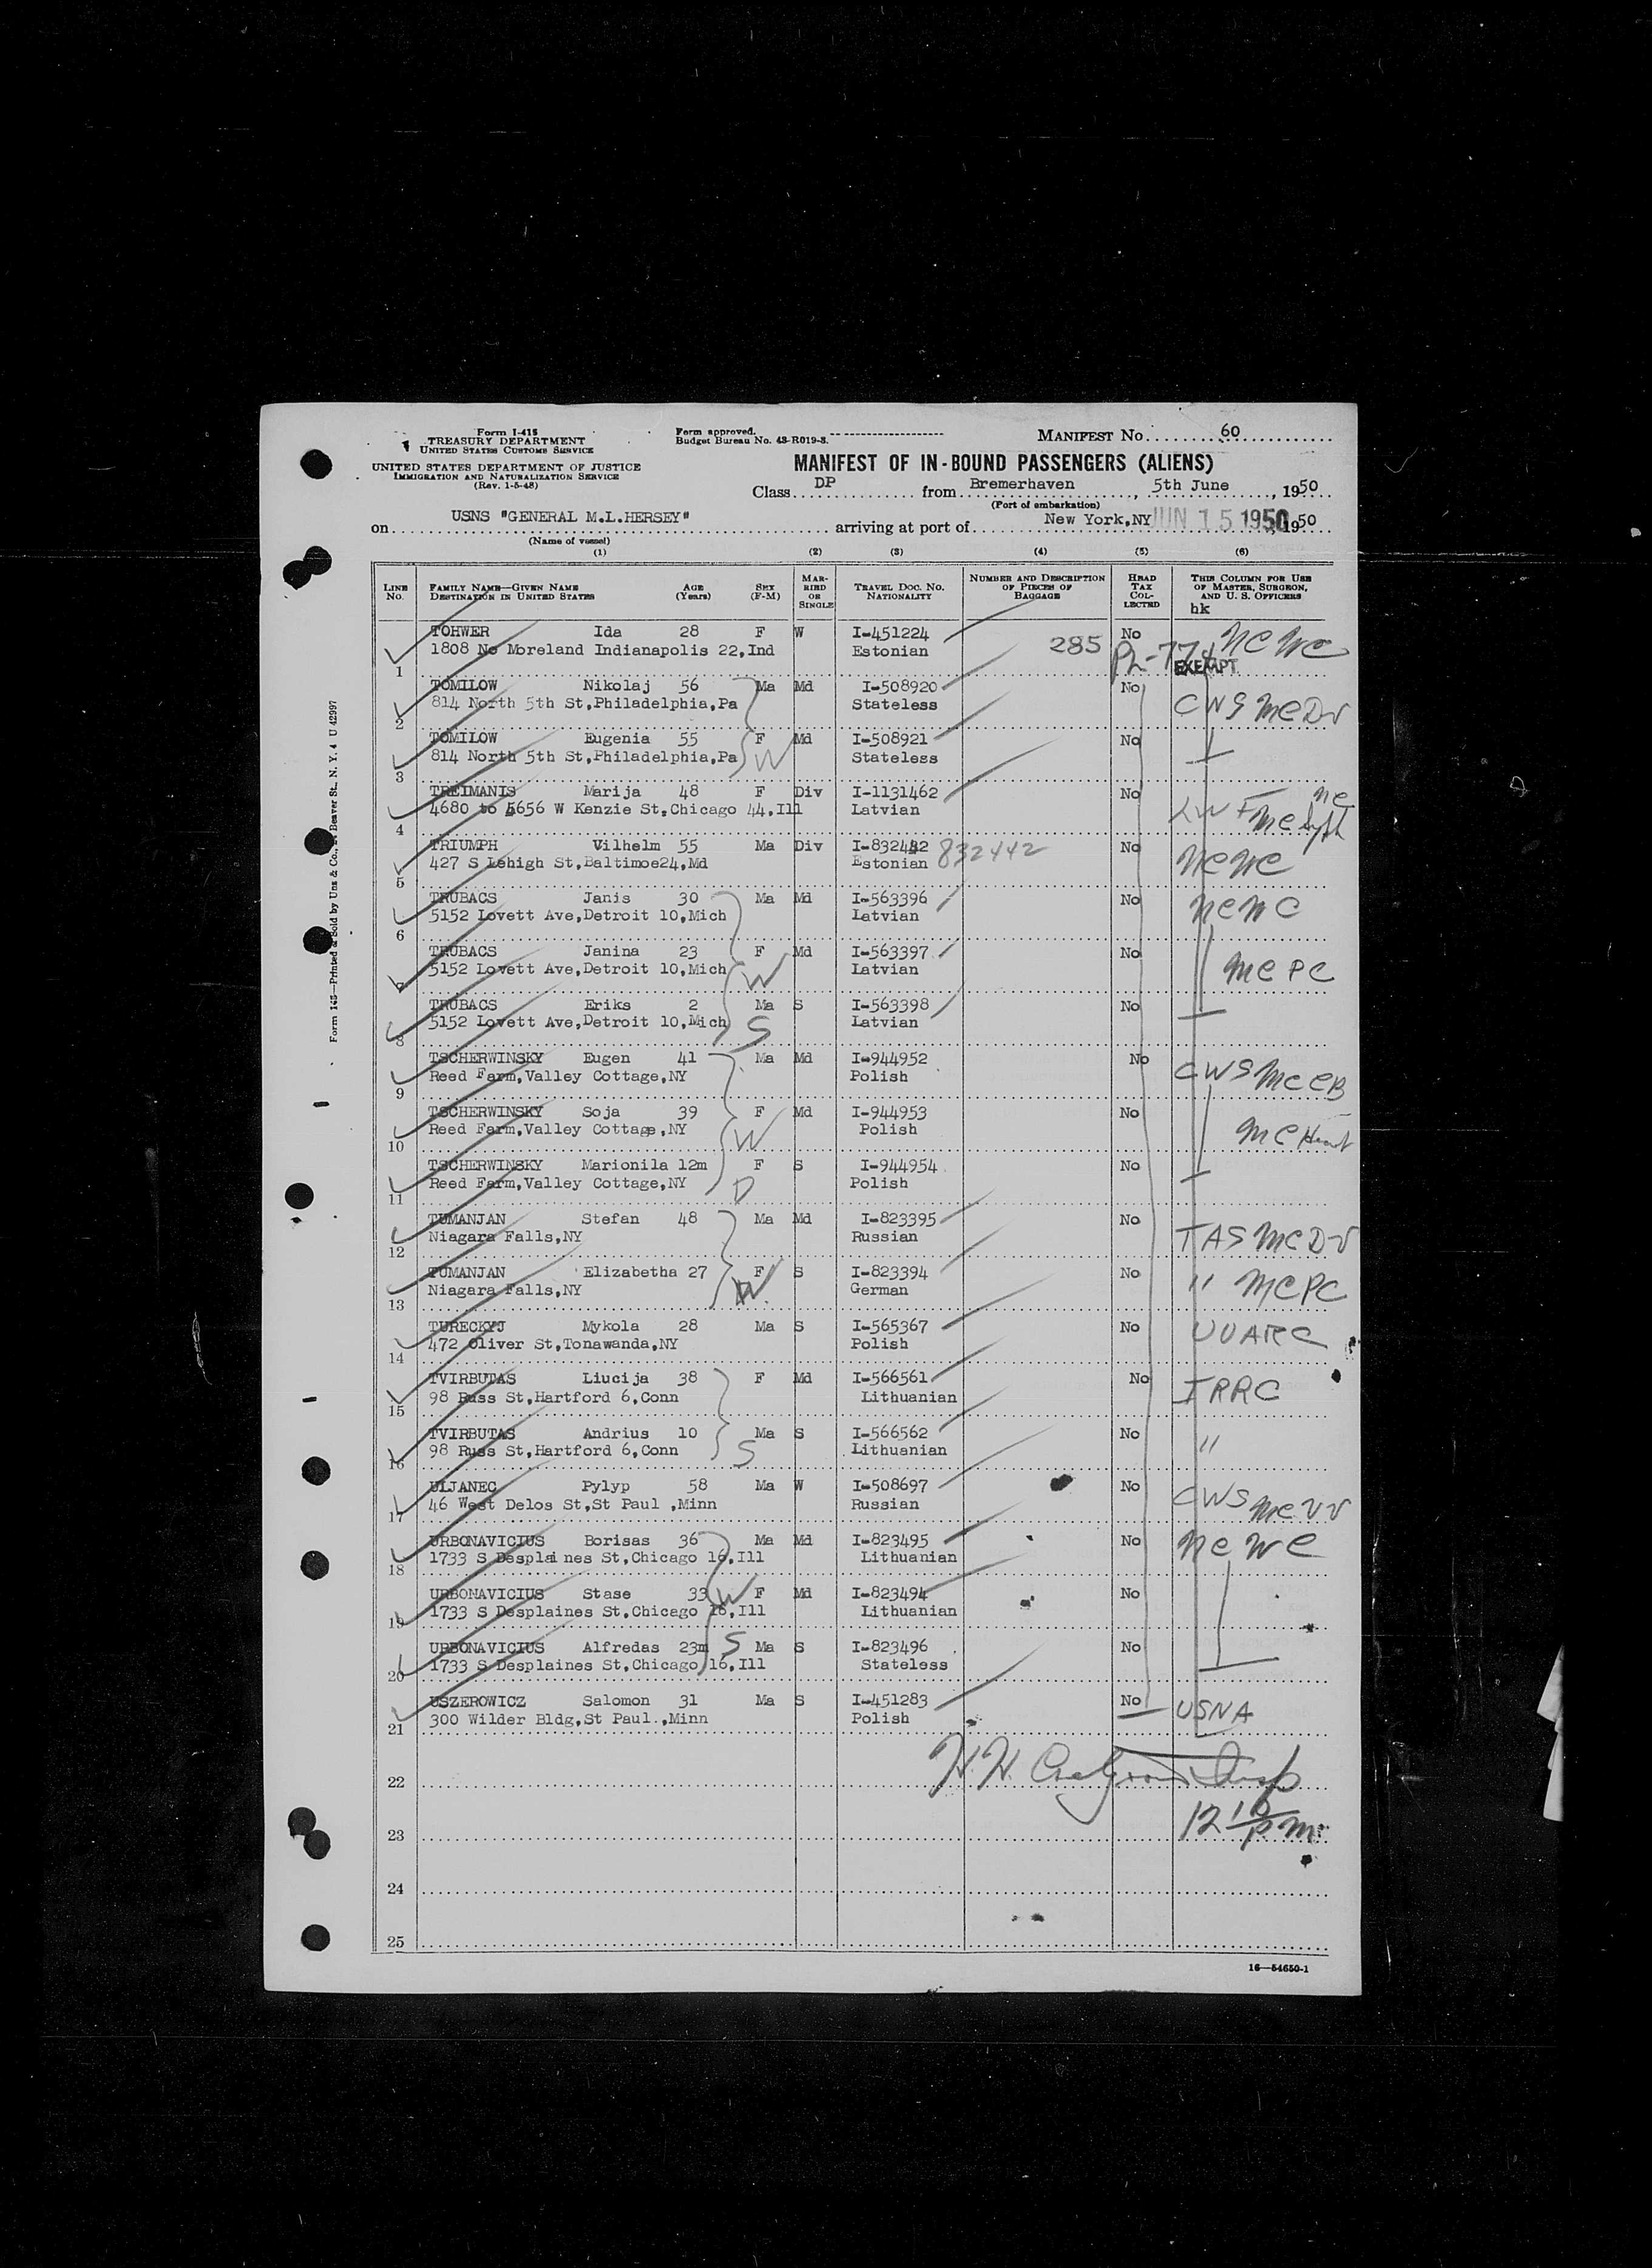 Form I-415
TREASURY DEPARTMENT
UNITED STATES CUSTOMS SERVICE
UNITED STATES DEPARTMENT OF JUSTICE
IMMIGRATION AND NATURALIZATION SERVICE
(Rev. 1-5-48)
Form approved.
Budget Bureau No. 43-R019-3.
MANIFEST No. 60
MANIFEST OF IN-BOUND PASSENGERS (ALIENS)
Class DP from Bremerhaven, 5th June, 1950
(Port of embarkation)
on USNS "GENERAL M.L.HERSEY" arriving at port of New York,NY JUN 15 1950, 1950
(Name of vessel)
(1) (2) (3) (4) (5) (6)
LINE No. FAMILY NAME—GIVEN NAME DESTINATION IN UNITED STATES AGE (Years) SEX (F-M) MARRIED OR SINGLE TRAVEL DOC. NO. NATIONALITY NUMBER AND DESCRIPTION OF PIECES OF BAGGAGE HEAD TAX COLLECTED THIS COLUMN FOR USE OF MASTER, SURGEON, AND U. S. OFFICERS
hk
TOHWER Ida 28 F W I-451224 285 No NCWC
1 1808 No Moreland Indianapolis 22,Ind Estonian EXEMPT
TOMILOW Nikolaj 56 Ma Md I-508920 No
2 814 North 5th St,Philadelphia,Pa Stateless CWS
TOMILOW Eugenia 55 F Md I-508921 No
3 814 North 5th St,Philadelphia,Pa W Stateless
TREIMANIS Marija 48 F Div I-1131462 No
4 4680 to 5656 W Kenzie St,Chicago 44,Ill Latvian LWF
TRIUMPH Vilhelm 55 Ma Div I-832442 No
5 427 S Lehigh St,Baltimoe24,Md Estonian 832442 NCWC
TRUBACS Janis 30 Ma Md I-563396 No
6 5152 Lovett Ave,Detroit 10,Mich Latvian NCWC
TRUBACS Janina 23 F Md I-563397 No
7 5152 Lovett Ave,Detroit 10,Mich W Latvian MC PC
TRUBACS Eriks 2 Ma S I-563398 No
8 5152 Lovett Ave,Detroit 10,Mich S Latvian
TSCHERWINSKY Eugen 41 Ma Md I-944952 No
9 Reed Farm,Valley Cottage,NY Polish CWS
TSCHERWINSKY Soja 39 F Md I-944953 No
10 Reed Farm,Valley Cottage,NY W Polish MC Heart
TSCHERWINSKY Marionila 12m F S I-944954 No
11 Reed Farm,Valley Cottage,NY D Polish
TUMANJAN Stefan 48 Ma Md I-823395 No
12 Niagara Falls,NY Russian TAS
TUMANJAN Elizabetha 27 F S I-823394 No
13 Niagara Falls,NY W German " MC PC
TURECKYJ Mykola 28 Ma S I-565367 No
14 472 Oliver St,Tonawanda,NY Polish UUARC
TVIRBUTAS Liucija 38 F Md I-566561 No
15 98 Russ St,Hartford 6,Conn Lithuanian IRRC
TVIRBUTAS Andrius 10 Ma S I-566562 No
16 98 Russ St,Hartford 6,Conn S Lithuanian "
ULJANEC Pylyp 58 Ma W I-508697 No
17 46 West Delos St,St Paul ,Minn Russian CWS MC VV
URBONAVICIUS Borisas 36 Ma Md I-823495 No
18 1733 S Desplaines St,Chicago 16,Ill Lithuanian NCWC
URBONAVICIUS Stase 33 W F Md I-823494 No
19 1733 S Desplaines St,Chicago 16,Ill Lithuanian
URBONAVICIUS Alfredas 23m S Ma S I-823496 No
20 1733 S Desplaines St,Chicago 16,Ill Stateless
USZEROWICZ Salomon 31 Ma S I-451283 No
21 300 Wilder Bldg,St Paul.,Minn Polish USNA
22
23
24
25
16—54650-1